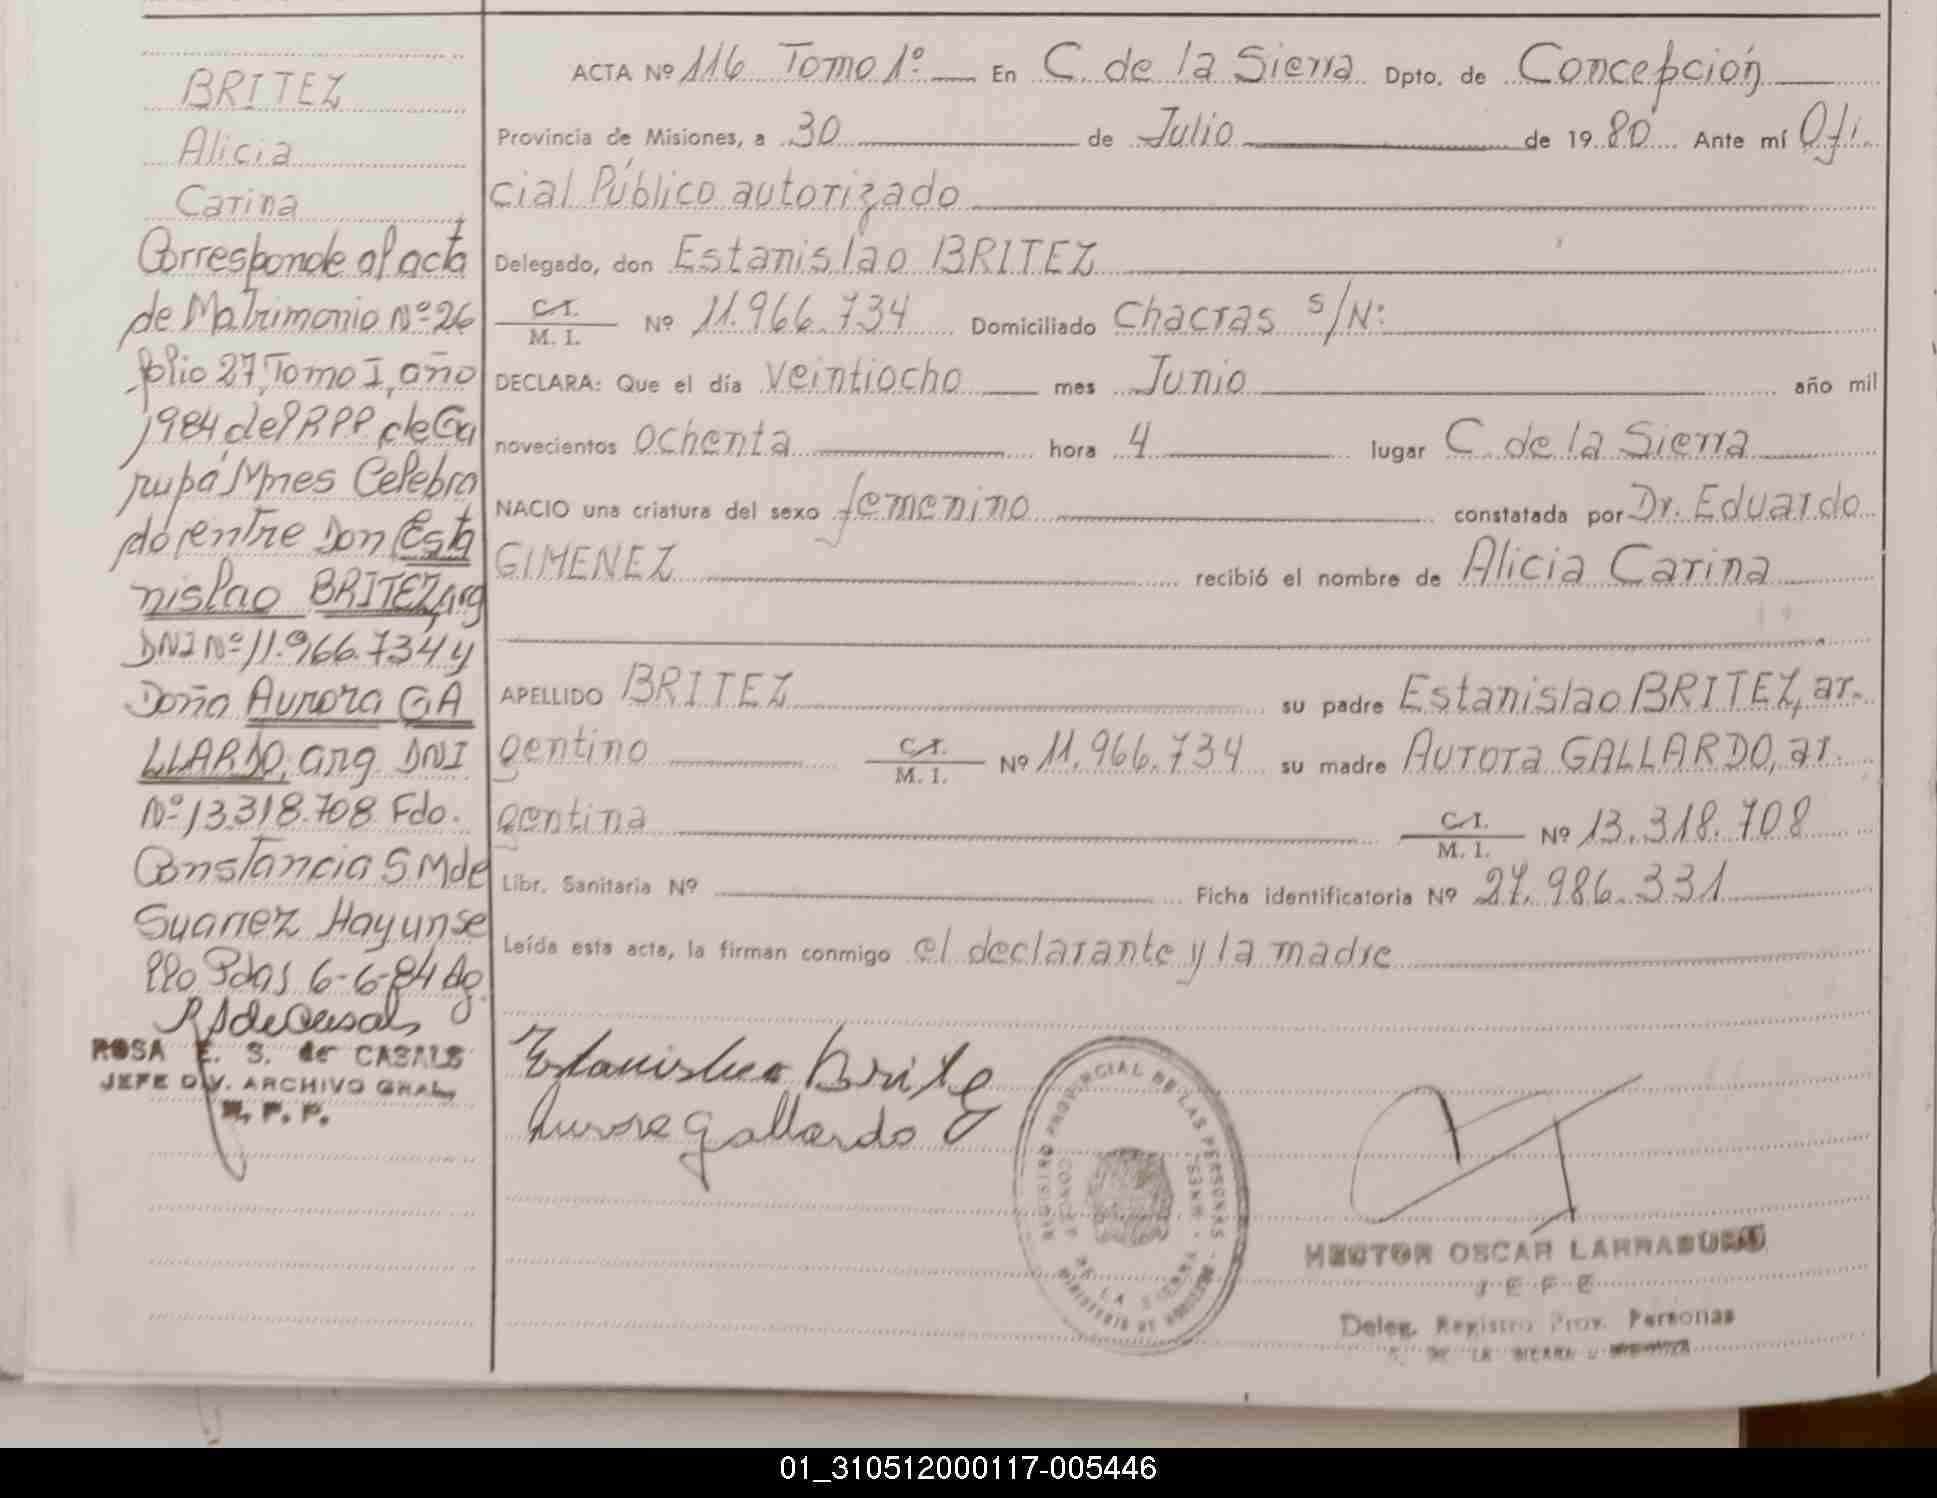 BRITEZ
Alicia
Carina
Corresponde al acta
de Matrimonio Nº 26
folio 27, Tomo I, año
1984 del RPP de Ga
rupá Mnes Celebra
do entre Don Esta
nislao BRITEZ, arg
DNI Nº 11.966.734 y
Doña Aurora GA
LLARDO, arg DNI
Nº 13.318.708 Fdo.
Constancia S.M de
Suarez Hay un se
llo Pdas 6-6-84
ROSA E. S. de CASALS
JEFE DIV. ARCHIVO GRAL.
R. P. P.
ACTA Nº 116 Tomo 1º En C. de la Sierra Dpto. de Concepción
Provincia de Misiones, a 30 de Julio de 1980 Ante mí Ofi.
cial Público autorizado
Delegado, don Estanislao BRITEZ
C.I. / M. I. Nº 11.966.734 Domiciliado Chacras S/N:
DECLARA: Que el día veintiocho mes Junio año mil
novecientos ochenta hora 4 lugar C. de la Sierra
NACIO una criatura del sexo femenino constatada por Dr. Eduardo
GIMENEZ recibió el nombre de Alicia Carina
APELLIDO BRITEZ su padre Estanislao BRITEZ, ar.
gentino C.I. / M. I. Nº 11.966.734 su madre Aurora GALLARDO, ar.
gentina C.I. / M. I. Nº 13.318.708
Libr. Sanitaria Nº Ficha identificatoria Nº 27.986.331
Leída esta acta, la firman conmigo el declarante y la madre
Estanislao Britez
Aurora Gallardo
REGISTRO PROVINCIAL DE LAS PERSONAS
HECTOR OSCAR
JEFE
Deleg. Registro Prov. Personas
01_310512000117-005446